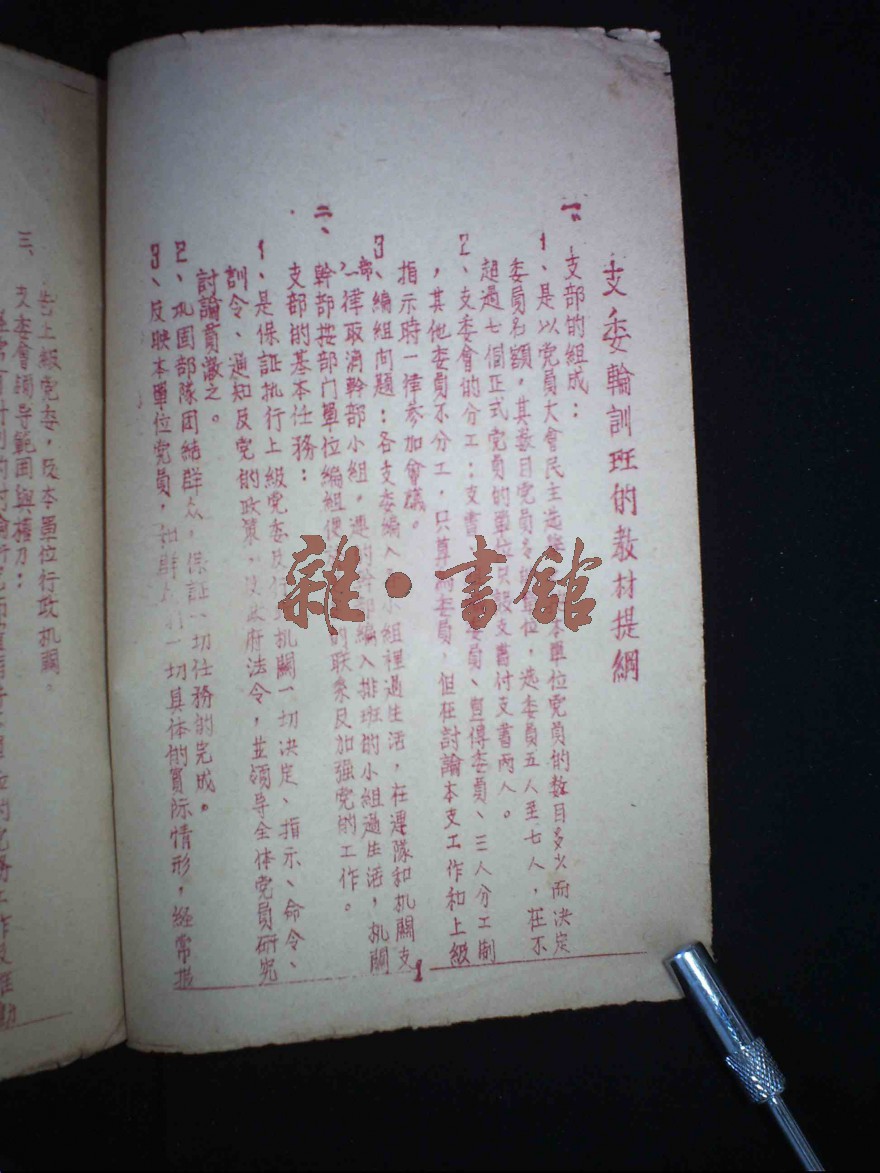 支委輪訓班的教材提綱
一、支部的組成：
1、是以党員大會民主选 本單位党員的数目多少而决定
委員名額，其数目党員 單位，选委員五人至七人，在不
超过七個正式党員的單位 支書付支書兩人。
2、支委會的分工：支書 委員、宣傳委員、三人分工制
，其他委員不分工，只算 委員，但在討論本支工作和上級
指示時一律参加會議。
3、編組问題：各支委編入 小組裡过生活，在連隊和机關支
部，一律取消幹部小組，連的幹部編入排班的小組过生活，机關
幹部按部门單位編組 的联系及加强党的工作。
二、支部的基本任務：
1、是保証执行上級党委及 机關一切决定、指示、命令、
訓令、通知及党的政策、 政府法令，並領导全体党員研究
討論貫澈之。
2、巩固部隊团結群众，保証一切任務的完成。
3、反映本單位党員， 一切具体的實际情形，經常
1
上級党委，及本單位行政机關。
三、支委會領导範囲與權力：
雜·書館